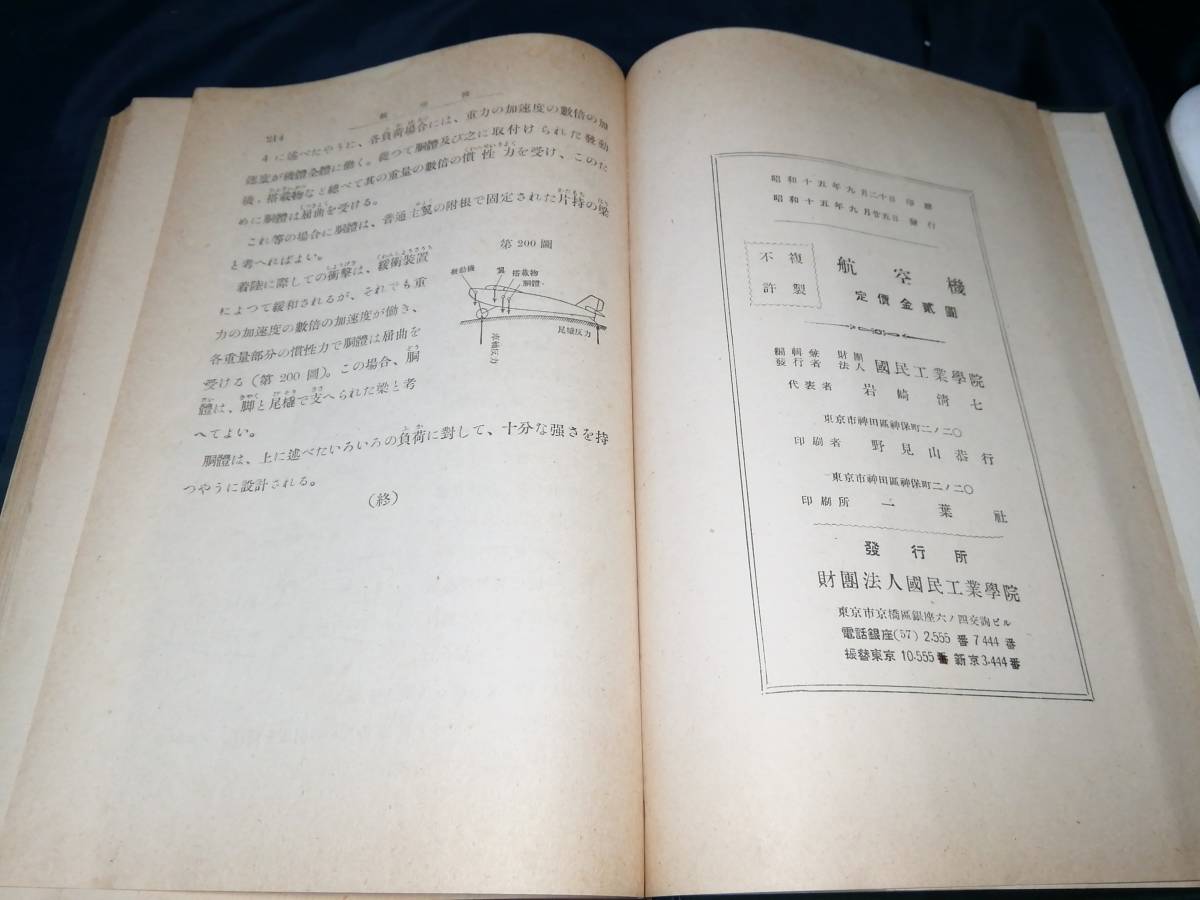 214
4 に述べたやうに、各負荷場合には、重力の加速度の數倍の加
速度が機體全體に働く。從つて胴體及び之に取付けられた發動
機・搭載物など總べて其の重量の數倍の慣性力を受け、このた
めに胴體は屈曲を受ける。
これ等の場合に胴體は、普通主翼の附根で固定された片持の梁
と考へればよい。
着陸に際しての衝擊は、緩衝裝置
によつて緩和されるが、それでも重
力の加速度の數倍の加速度が働き、
各重量部分の慣性力で胴體は屈曲を
受ける(第 200 圖)。この場合、胴
體は、脚と尾橇で支へられた梁と考
へてよい。
第 200 圖
發動機
翼
搭載物
胴體
尾橇反力
車輪反力
胴體は、上に述べたいろいろの負荷に對して、十分な强さを持
つやうに設計される。
(終)
昭和十五年九月二十日 印刷
昭和十五年九月廿五日 發行
不 複
許 製
航空機
定價金貳圓
編輯兼 財團
發行者 法人 國民工業學院
代表者 岩崎淸七
東京市神田區神保町二ノ二〇
印刷者 野見山恭行
東京市神田區神保町二ノ二〇
印刷所 一葉社
發行所
財團法人國民工業學院
東京市京橋區銀座六ノ四交詢ビル
電話銀座(57) 2.555 番 7444 番
振替東京 10.555 番 新京 3.444 番